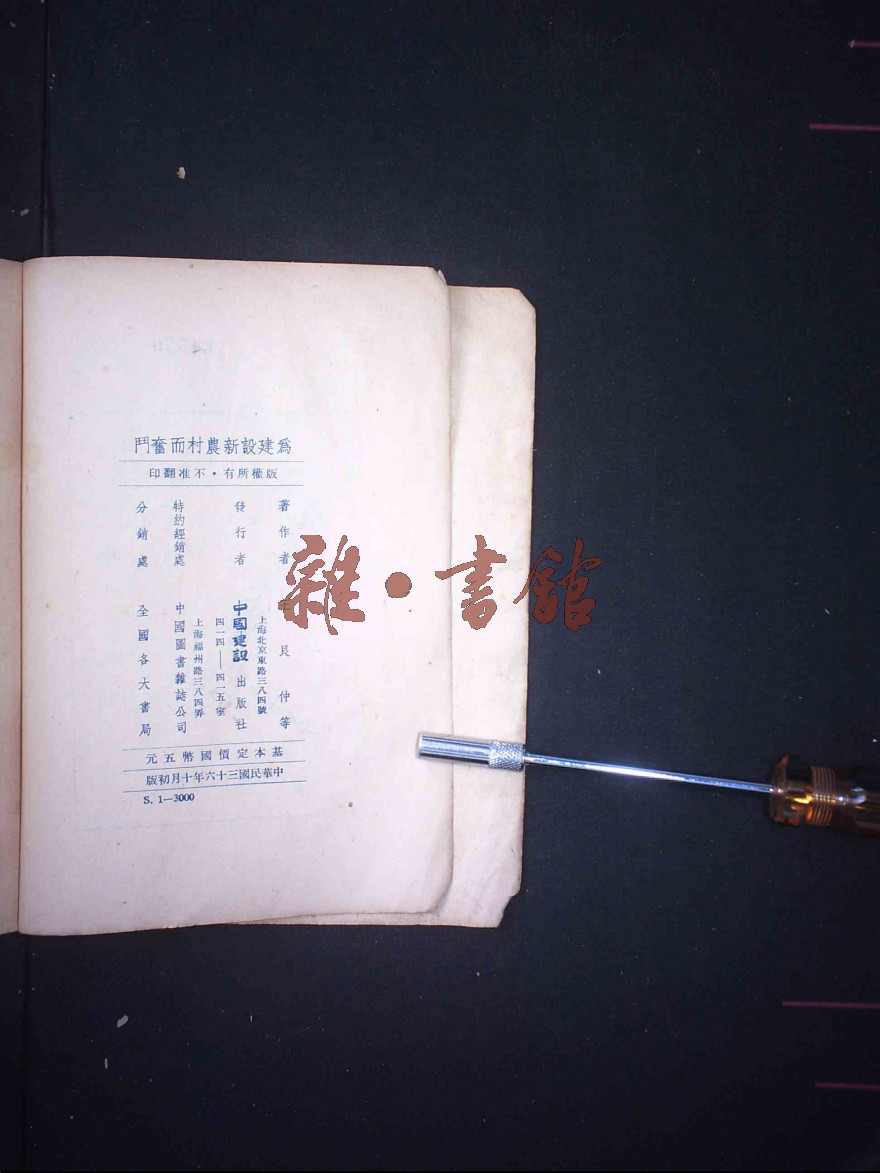 爲建設新農村而奮鬥
版權所有・不准翻印
著作者 王艮仲等
上海北京東路三八四號
發行者 中國建設出版社
四一四——四一五室
上海福州路三八四弄
特約經銷處 中國圖書雜誌公司
分銷處 全國各大書局
基本定價國幣五元
中華民國三十六年十月初版
S. 1—3000
雜・書館